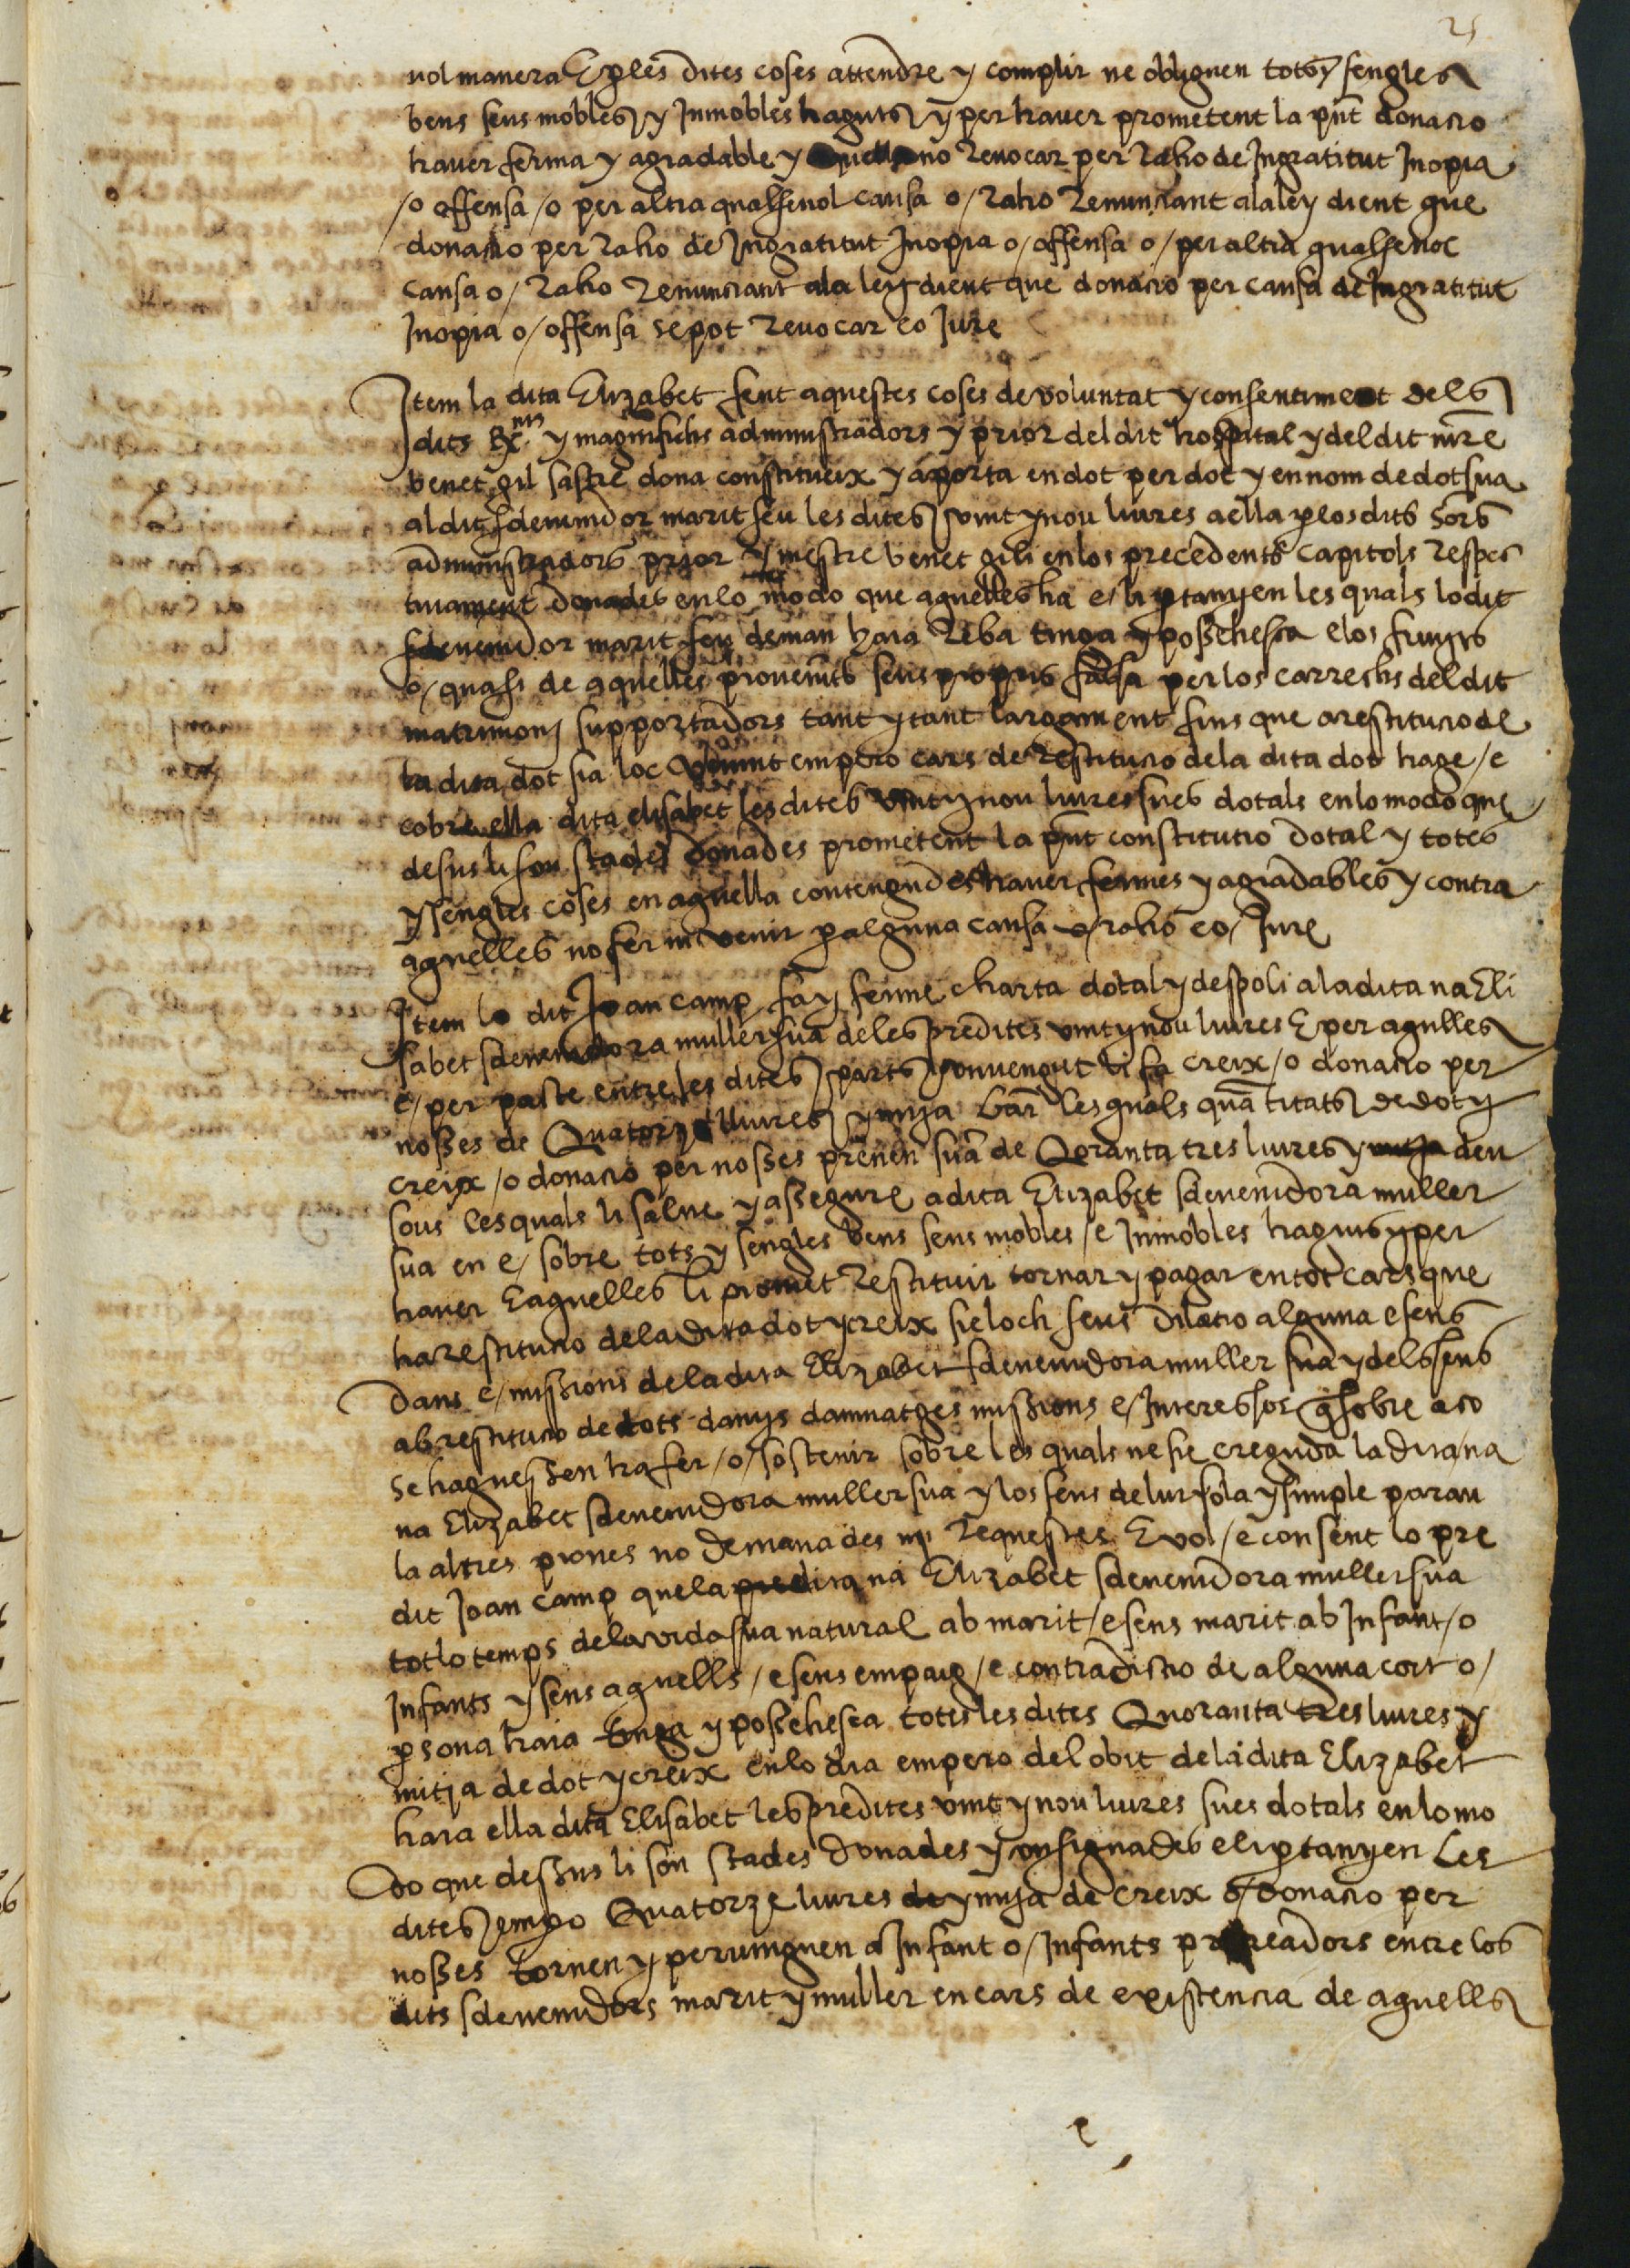 25
vol manera E ples dites coses attendre y complir ne obliguen tots y sengles
bens seus mobles y Inmobles haguts y per haver prometent la pnt donacio
haver ferma y agradable y aquella no revocar per raho de Ingratitut Inopia
/o offensa /o per altra qualsevol causa o/ raho renunciant ala ley dient que
donacio per raho de Ingratitut Inopia o/ offensa o/ per altra qualsevol
causa o/ raho renunciant ala ley dient que donacio per causa de Ingratitut
Inopia o/ offensa se pot revocar eo Jure
Item la dita Elizabet fent aquestes coses de voluntat y consentiment dels
dits Rx. y magnifichs administradors y prior del dit hospital y del dit mre
benet gil sastre dona constitueix y aporta en dot per dot y en nom de dot sua
al dit sdevenidor marit seu les dites vint y nou liures a ella p los dits sors
administradors prior y mestre benet gili en los precedents capitols respec
tivament donades en lo modo que aquelles ha e/ li ptanyen les quals lo dit
sdevenidor marit seu deman haia reba tinga y possehesca e los fruyts
o/ quasi de aquelles provenits seus propris fassa per los carrechs del dit
matrimonj supportadors tant y tant largament fins que a restitucio de
la dita dot sia loc vinint empero cars de restitucio dela dita dot hage /e
cobre ella dita elisabet les dites vint y nou liures sues dotals en lo modo que
desus li son stades donades prometent la pnt constitutio dotal y totes
y sengles coses en aquella contengudes haver fermes y agradables y contra
aquelles no fer ni venir p alguna causa o/ raho eo/ Jure
Item lo dit Joan camp fa y ferme charta dotal y despoli ala dita na Eli
sabet sdevenidora muller sua deles predites vint y nou liures E per aqulles
e/ per pacte entre les dites parts convengut li fa creix /o donacio per
nosses de Quatorze lliures y mija bar les quals quātitats de dot y
creix /o donacio per nosses prenen sua de Qoranta tres liures y deu
sous les quals li salve y assegure a dita Elizabet sdevenidora muller
sua en e/ sobre tots y sengles bens seus mobles /e Inmobles haguts y per
haver E aquelles li promet restituir tornar y pagar en tot cars que
ha restitucio dela dita dot y creix sie loch sens dilatio alguna e sens
dans e/ missions dela dita Elizabet sdevenidora muller sua y dels seus
ab restitucio de tots danys damnatges missions e/ Interessos q sobre aco
se haguessen ha fer /o/ sostenir sobre les quals ne sie creguda la dita na
na Elizabet sdevenidora muller sua y los seus de lur sola y simple parau
la altres proves no demanades ni requestes E vol /e consent lo pre
dit Joan camp que la predita na Elizabet sdevenidora muller sua
tot lo temps dela vida sua natural ab marit /e sens marit ab Infant /o
Infants y sens aquells /e sens empaig /e contradictio de alguna cort o/
psona haia tinga y possehesca totes les dites Quoranta tres liures y
mitja de dot y creix en lo dia empero del obit dela dita Elizabet
haia ella dita Elisabet les predites vint y nou liures sues dotals en lo mo
do que dessus li son stades donades y consignades e li ptanyen Les
dites empo Quatorze liures y mija de creix o/ donacio per
nosses tornen y pervinguen a Infant o/ Infants procreadors entre los
dits sdevenidors marit y muller en cars de existencia de aquells